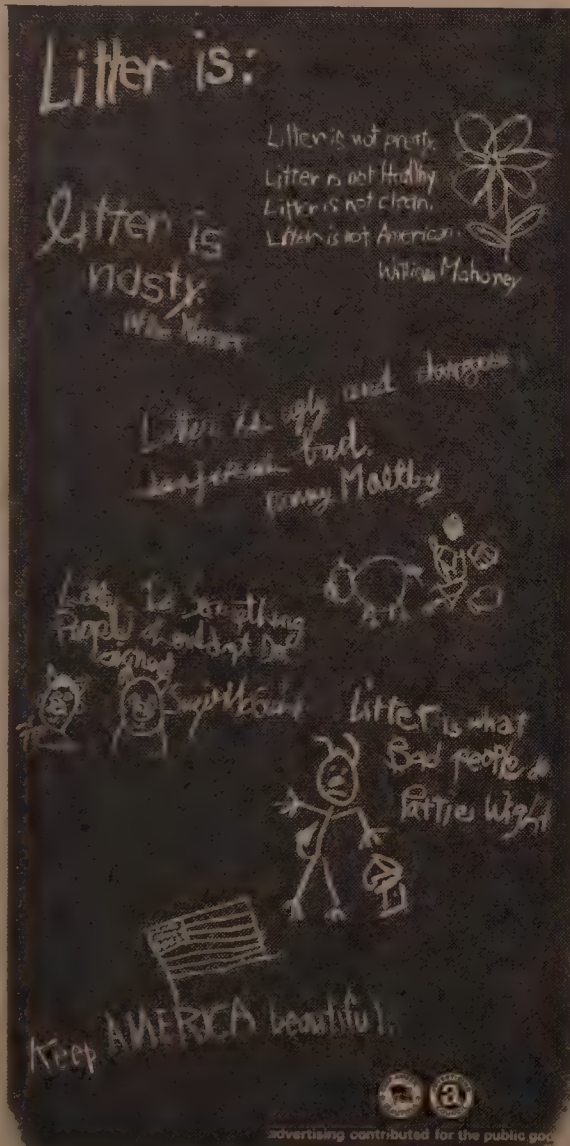 Litter is:
Litter is not pretty.
Litter is not Healthy.
Litter is not clean.
Litter is not American.
William Mahoney
Litter is
nasty.
Litter is ugly and
bad.
Maltby
Litter is something
People shouldn't Do
signed
Litter is what
Bad people do
Pattie Wight
Keep AMERICA beautiful.
advertising contributed for the public good